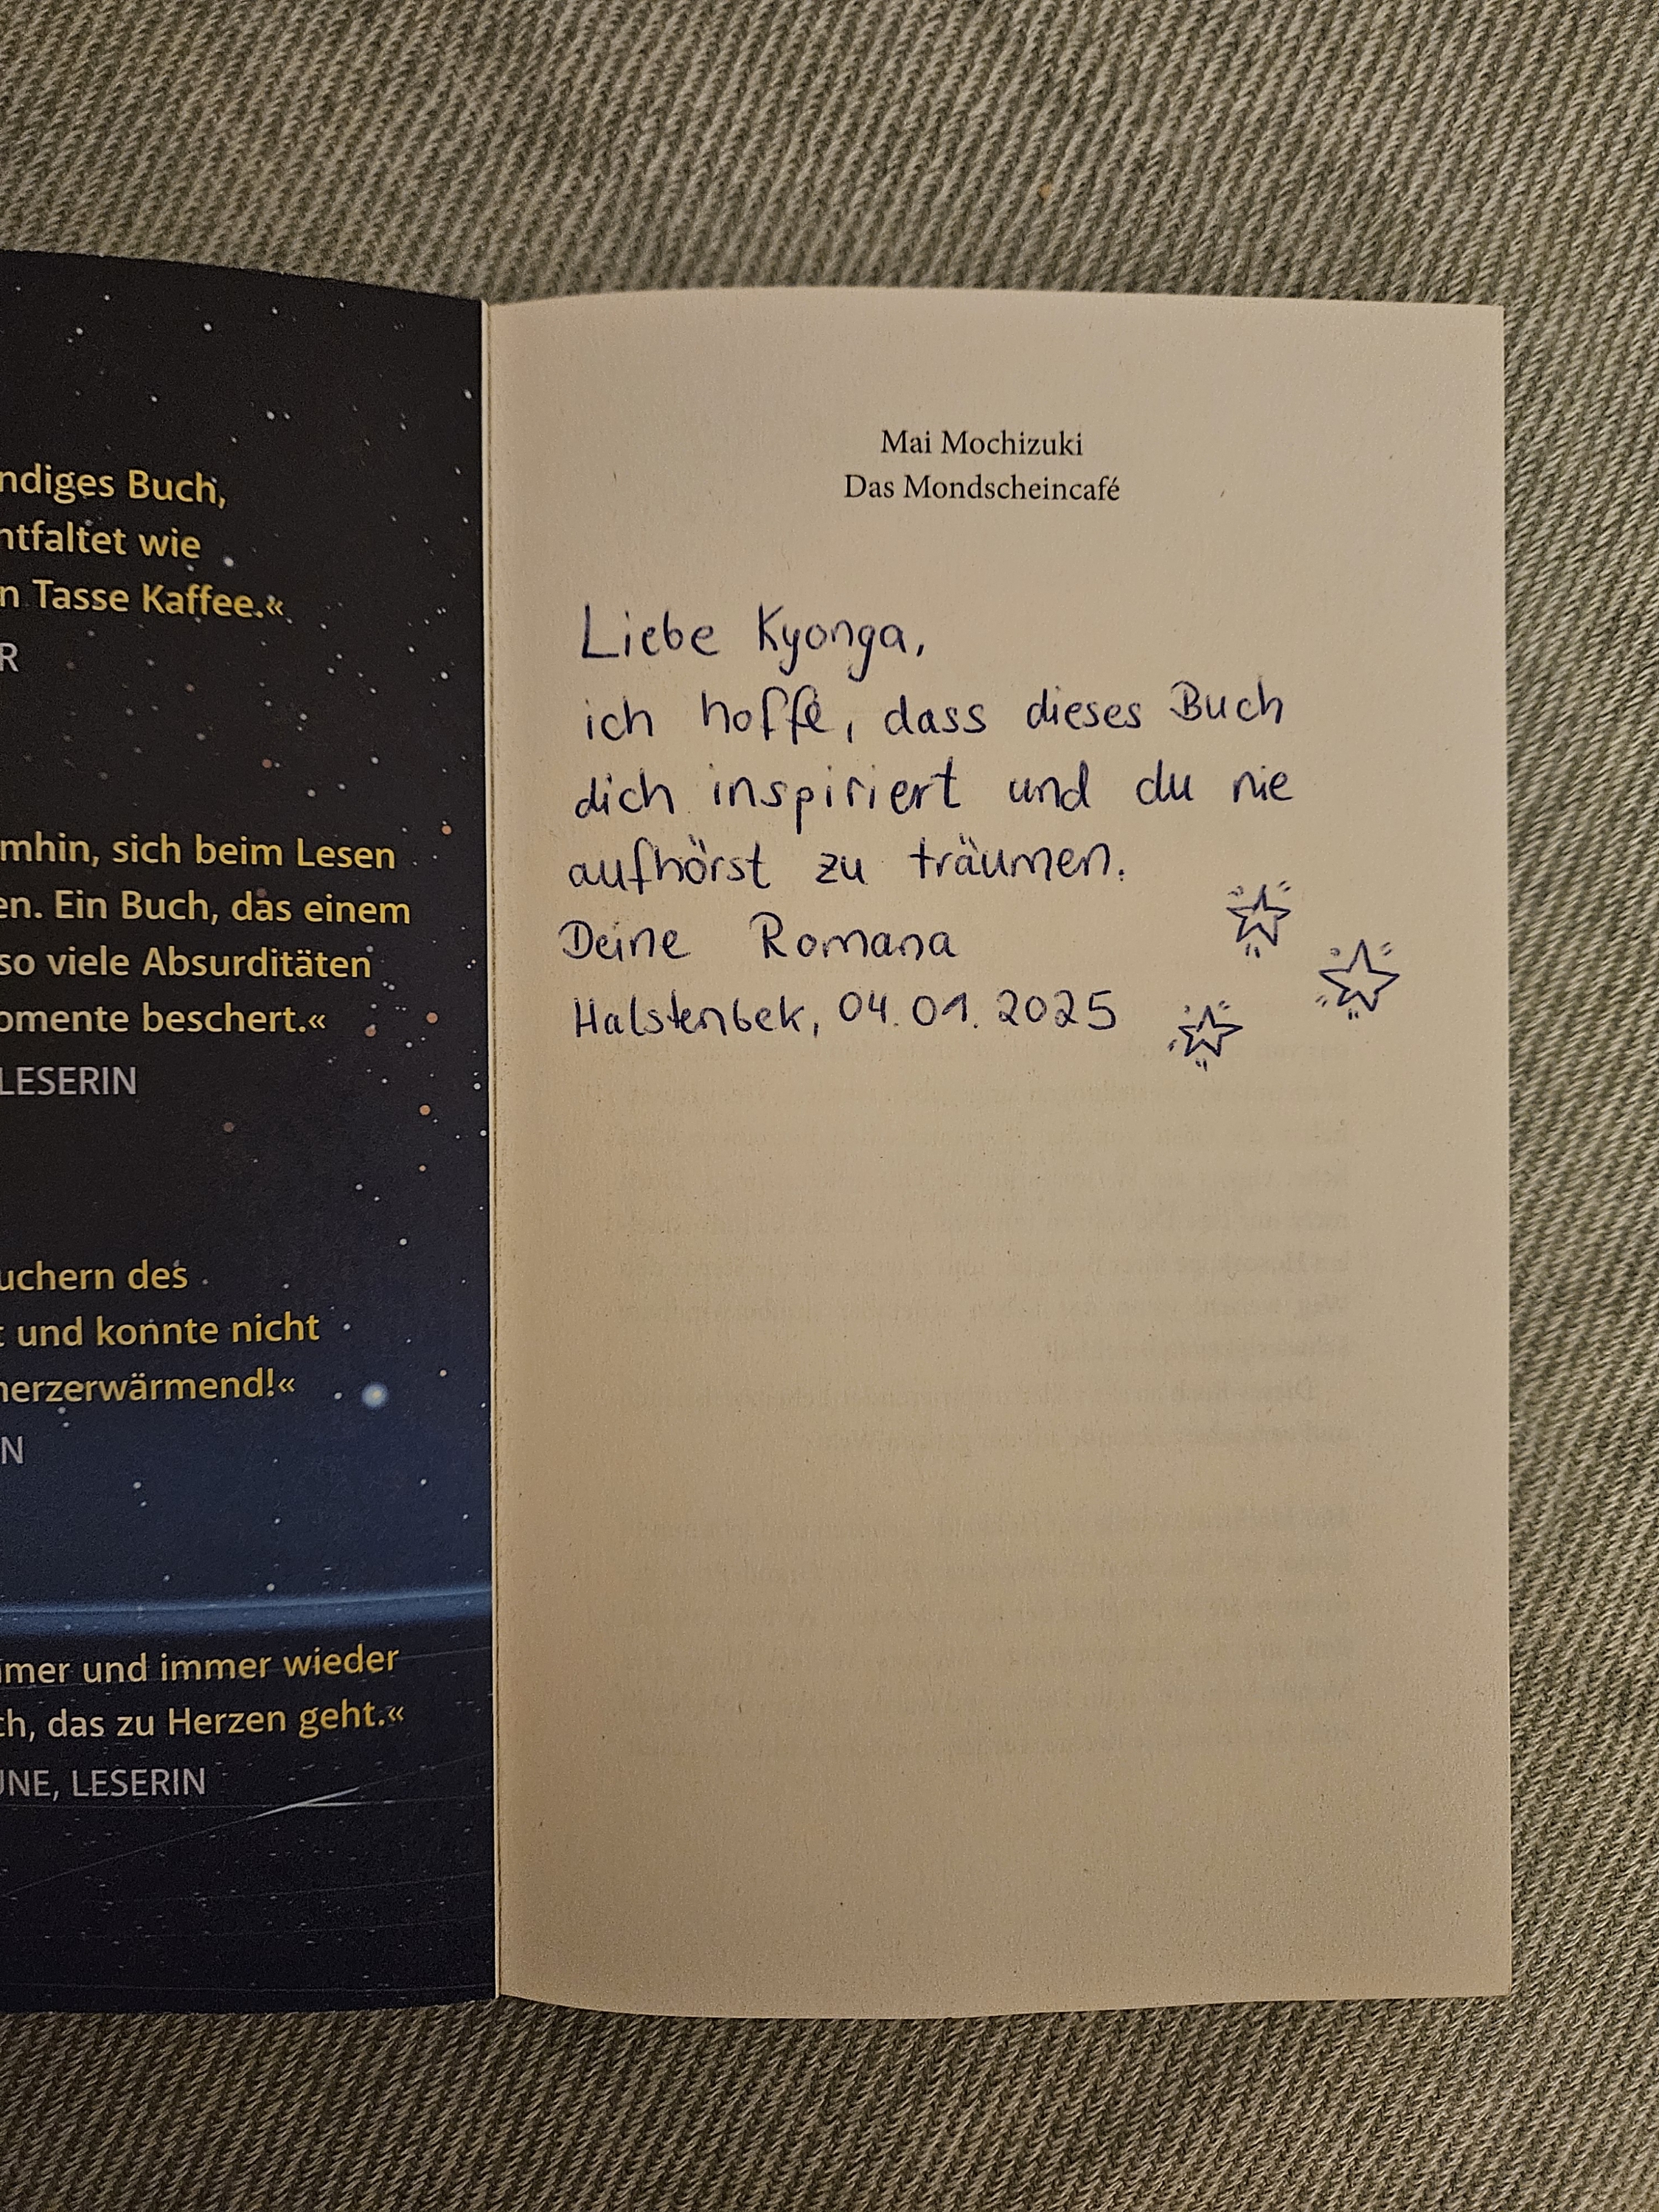 ndiges Buch,
ntfaltet wie
n Tasse Kaffee.«
R
mhin, sich beim Lesen
en. Ein Buch, das einem
so viele Absurditäten
omente beschert.«
LESERIN
uchern des
t und konnte nicht
herzerwärmend!«
N
mmer und immer wieder
ch, das zu Herzen geht.«
UNE, LESERIN
Mai Mochizuki
Das Mondscheincafé
Liebe Kyonga,
ich hoffe, dass dieses Buch
dich inspiriert und du nie
aufhörst zu träumen.
Deine Romana
Halstenbek, 04.01.2025